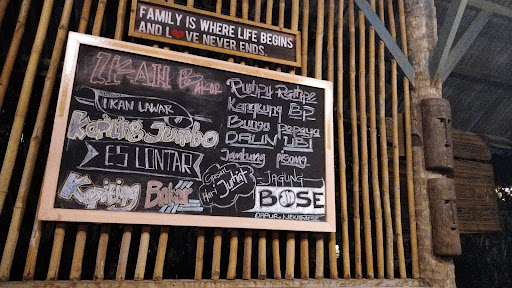 FAMILY IS WHERE LIFE BEGINS
AND LOVE NEVER ENDS.
IKAN Bakar
IKAN LAWAR
Kepiting Jumbo
ES LONTAR
Kepiting Bakar
Rumpu Rampe
Kangkung BP
Bunga Pepaya
DAUN UBI
Jantung pisang
JAGUNG
Hari Jumat
BOSE
DAPUR NEKAMESE